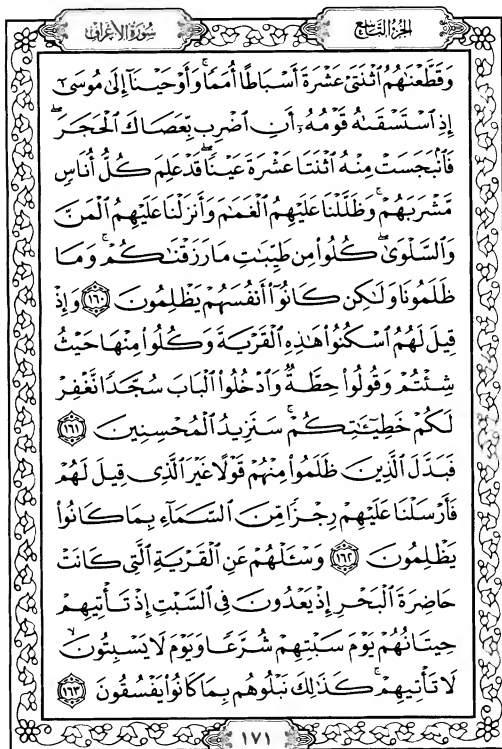 الجزء التاسع
سورة الأعراف
وَقَطَّعْنَاهُمُ ٱثْنَتَىْ عَشْرَةَ أَسْبَاطًا أُمَمًا ۚ وَأَوْحَيْنَآ إِلَىٰ مُوسَىٰٓ
إِذِ ٱسْتَسْقَىٰهُ قَوْمُهُۥٓ أَنِ ٱضْرِب بِّعَصَاكَ ٱلْحَجَرَ ۖ
فَٱنۢبَجَسَتْ مِنْهُ ٱثْنَتَا عَشْرَةَ عَيْنًا ۖ قَدْ عَلِمَ كُلُّ أُنَاسٍ
مَّشْرَبَهُمْ ۚ وَظَلَّلْنَا عَلَيْهِمُ ٱلْغَمَٰمَ وَأَنزَلْنَا عَلَيْهِمُ ٱلْمَنَّ
وَٱلسَّلْوَىٰ ۖ كُلُوا۟ مِن طَيِّبَٰتِ مَا رَزَقْنَٰكُمْ ۚ وَمَا
ظَلَمُونَا وَلَٰكِن كَانُوٓا۟ أَنفُسَهُمْ يَظْلِمُونَ ١٦٠ وَإِذْ
قِيلَ لَهُمُ ٱسْكُنُوا۟ هَٰذِهِ ٱلْقَرْيَةَ وَكُلُوا۟ مِنْهَا حَيْثُ
شِئْتُمْ وَقُولُوا۟ حِطَّةٌ وَٱدْخُلُوا۟ ٱلْبَابَ سُجَّدًا نَّغْفِرْ
لَكُمْ خَطِيٓـَٰٔتِكُمْ ۚ سَنَزِيدُ ٱلْمُحْسِنِينَ ١٦١
فَبَدَّلَ ٱلَّذِينَ ظَلَمُوا۟ مِنْهُمْ قَوْلًا غَيْرَ ٱلَّذِى قِيلَ لَهُمْ
فَأَرْسَلْنَا عَلَيْهِمْ رِجْزًا مِّنَ ٱلسَّمَآءِ بِمَا كَانُوا۟
يَظْلِمُونَ ١٦٢ وَسْـَٔلْهُمْ عَنِ ٱلْقَرْيَةِ ٱلَّتِى كَانَتْ
حَاضِرَةَ ٱلْبَحْرِ إِذْ يَعْدُونَ فِى ٱلسَّبْتِ إِذْ تَأْتِيهِمْ
حِيتَانُهُمْ يَوْمَ سَبْتِهِمْ شُرَّعًا وَيَوْمَ لَا يَسْبِتُونَ ۙ
لَا تَأْتِيهِمْ ۚ كَذَٰلِكَ نَبْلُوهُم بِمَا كَانُوا۟ يَفْسُقُونَ ١٦٣
١٧١